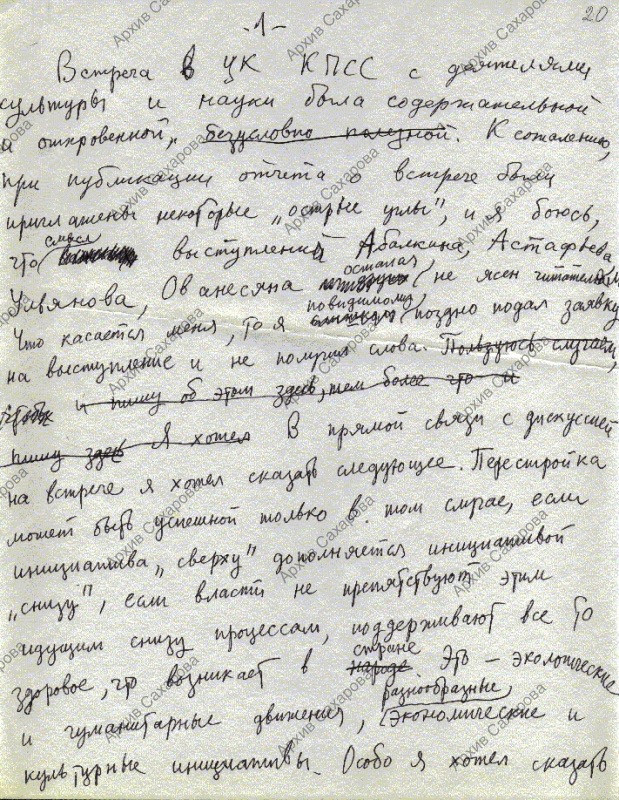 -1-
20
Встреча в ЦК КПСС с деятелями
культуры и науки была содержательной
и откровенной, безусловно полезной. К сожалению,
при публикации отчета о встрече были
приглажены некоторые „острые углы", и я боюсь,
что смысл выступлений Абалкина, Астафьева
Ульянова, Ованесяна остался не ясен читателям
Что касается меня, то я повидимому, поздно подал заявку
на выступление и не получил слова. Пользуюсь случаем,
чтобы и пишу об этом здесь, тем более что и
пишу здесь Я хотел В прямой связи с дискуссией
на встрече я хотел сказать следующее. Перестройка
может быть успешной только в том случае, если
инициатива „сверху" дополняется инициативой
„снизу", если власти не препятствуют этим
идущим снизу процессам, поддерживают все то
здоровое, что возникает в народе стране Это – экологические
и гуманитарные движения, разнообразные экономические и
культурные инициативы. Особо я хотел сказать
Архив Сахарова